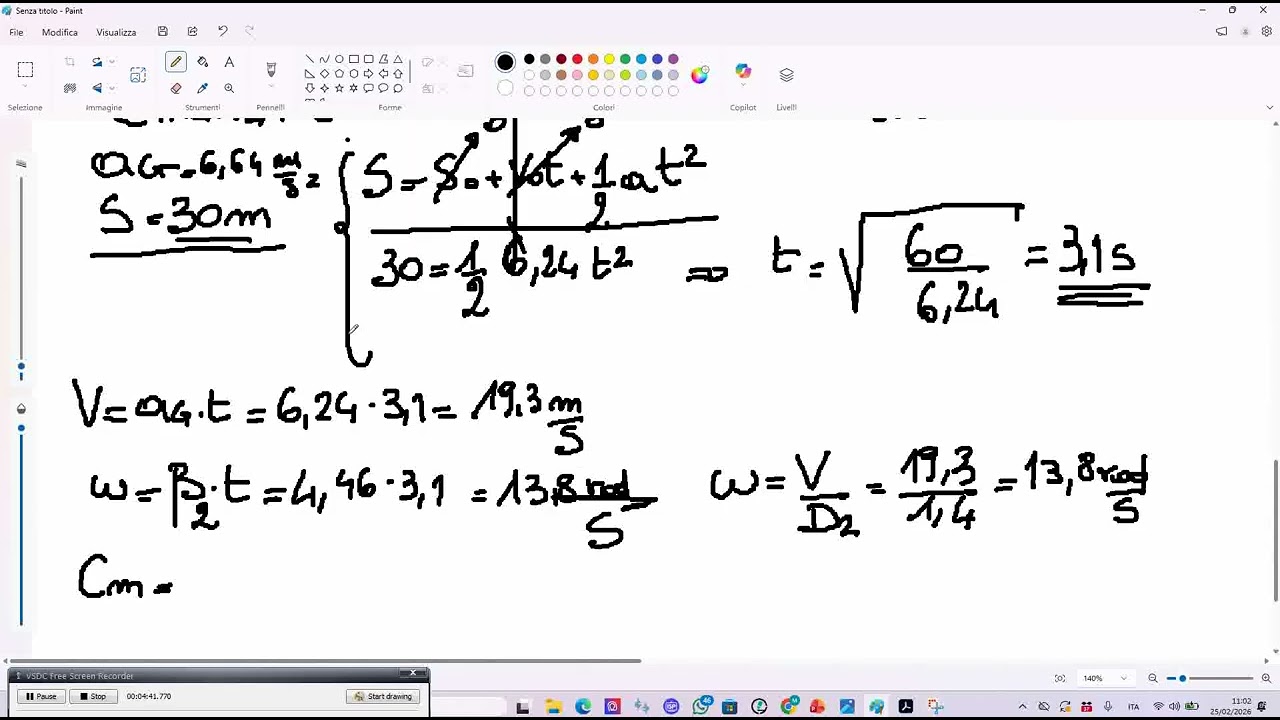 Senza titolo - Paint
File Modifica Visualizza
Selezione Immagine Strumenti Pennelli Forme Colori Copilot Livelli
aG=6,64 m/s²
S = S₀ + V₀t + 1/2 at²
S = 30m
30 = 1/2 6,24 t² => t = √(60/6,24) = 3,1s
V = aG·t = 6,24·3,1 = 19,3 m/s
ω = β₂·t = 4,46·3,1 = 13,8 rad/s ω = V/D₂ = 19,3/1,4 = 13,8 rad/s
Cm =
VSDC Free Screen Recorder
Pause Stop 00:04:41.770 Start drawing
140%
46
ITA
11:02
25/02/2026